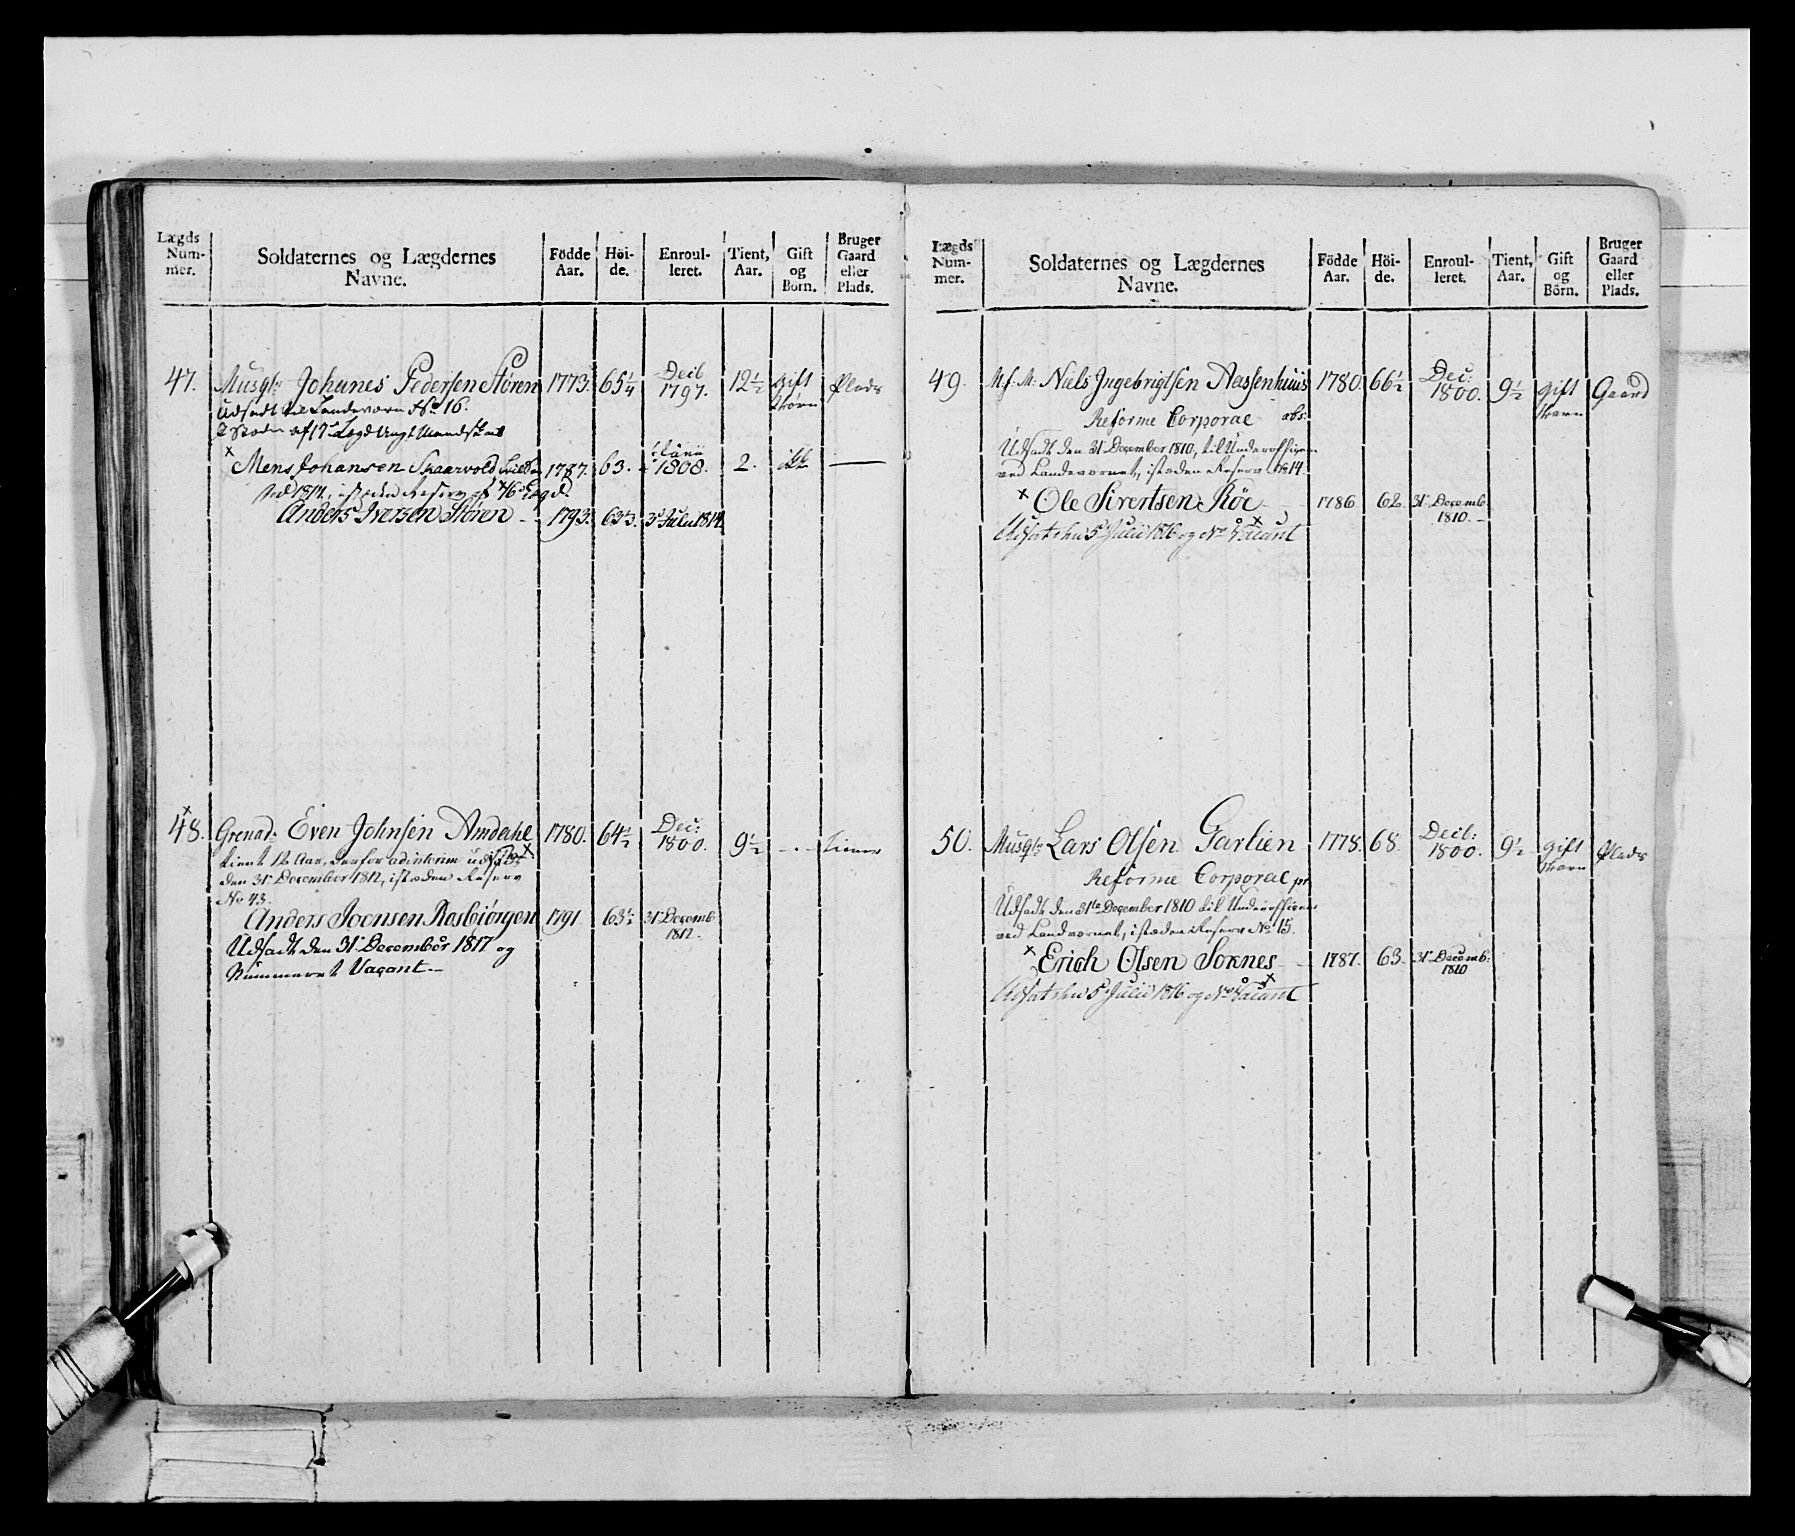 Lægds Num- mer.
Soldaternes og Lægdernes Navne.
Födde Aar.
Höi- de.
Enroul- leret.
Tient, Aar.
Gift og Börn.
Bruger Gaard eller Plads.
47. Musqt: Johanes Pedersen Støren 1773. 65 1/4 Decb 1797. 12 1/2 Gift Plads
Udsadt til Landeværn No 16.
Mens Johansen Skaarvold 1787. 63. 1808. 2. —
Anders Iversen Støren - 1793. 63 1/2. 3d Julii 1814
48. Grenad: Even Johnsen Amdahl 1780. 64 1/2 Dec: 1800. 9 1/2 - . - tiener
tient 12 Aar, derfor ad interim udsadt
den 31te December 1812, istæden Reserv
No 43.
Anders Joensen Rosbiørgen 1791 63 1/2 31te Decemb 1812.
Udsadt den 31te December 1817 og
Nummeret Vacant.-
Lægds Num- mer.
Soldaternes og Lægdernes Navne.
Födde Aar.
Höi- de.
Enroul- leret.
Tient, Aar.
Gift og Börn.
Bruger Gaard eller Plads.
49. Niels Ingebrigtsen Aassenhuus 1780. 66 1/2 Dec: 1800. 9 1/2 Gift Gaard
Reforme Corporal abs:
Udsadt den 31te December 1810, til Underofficeer
ved Landeværnet, istæden Reserv No 14.
Ole Sivertsen Röe - 1786 62. 31te Decemb. 1810.-
Udsat ... 5te Julii 1816 og No Vacant
50. Musqt: Lars Olsen Garlien 1778. 68. Decb: 1800. 9 1/2 Gift Plads
Reforme Corporal pr
Udsadt den 31te December 1810 til Underofficeer
ved Landværnet, istæden Reserv No 15.
Erich Olsen Soknes - 1787. 63. 31te Decemb: 1810
Udsat ... 5te Julii 1816 og No Vacant